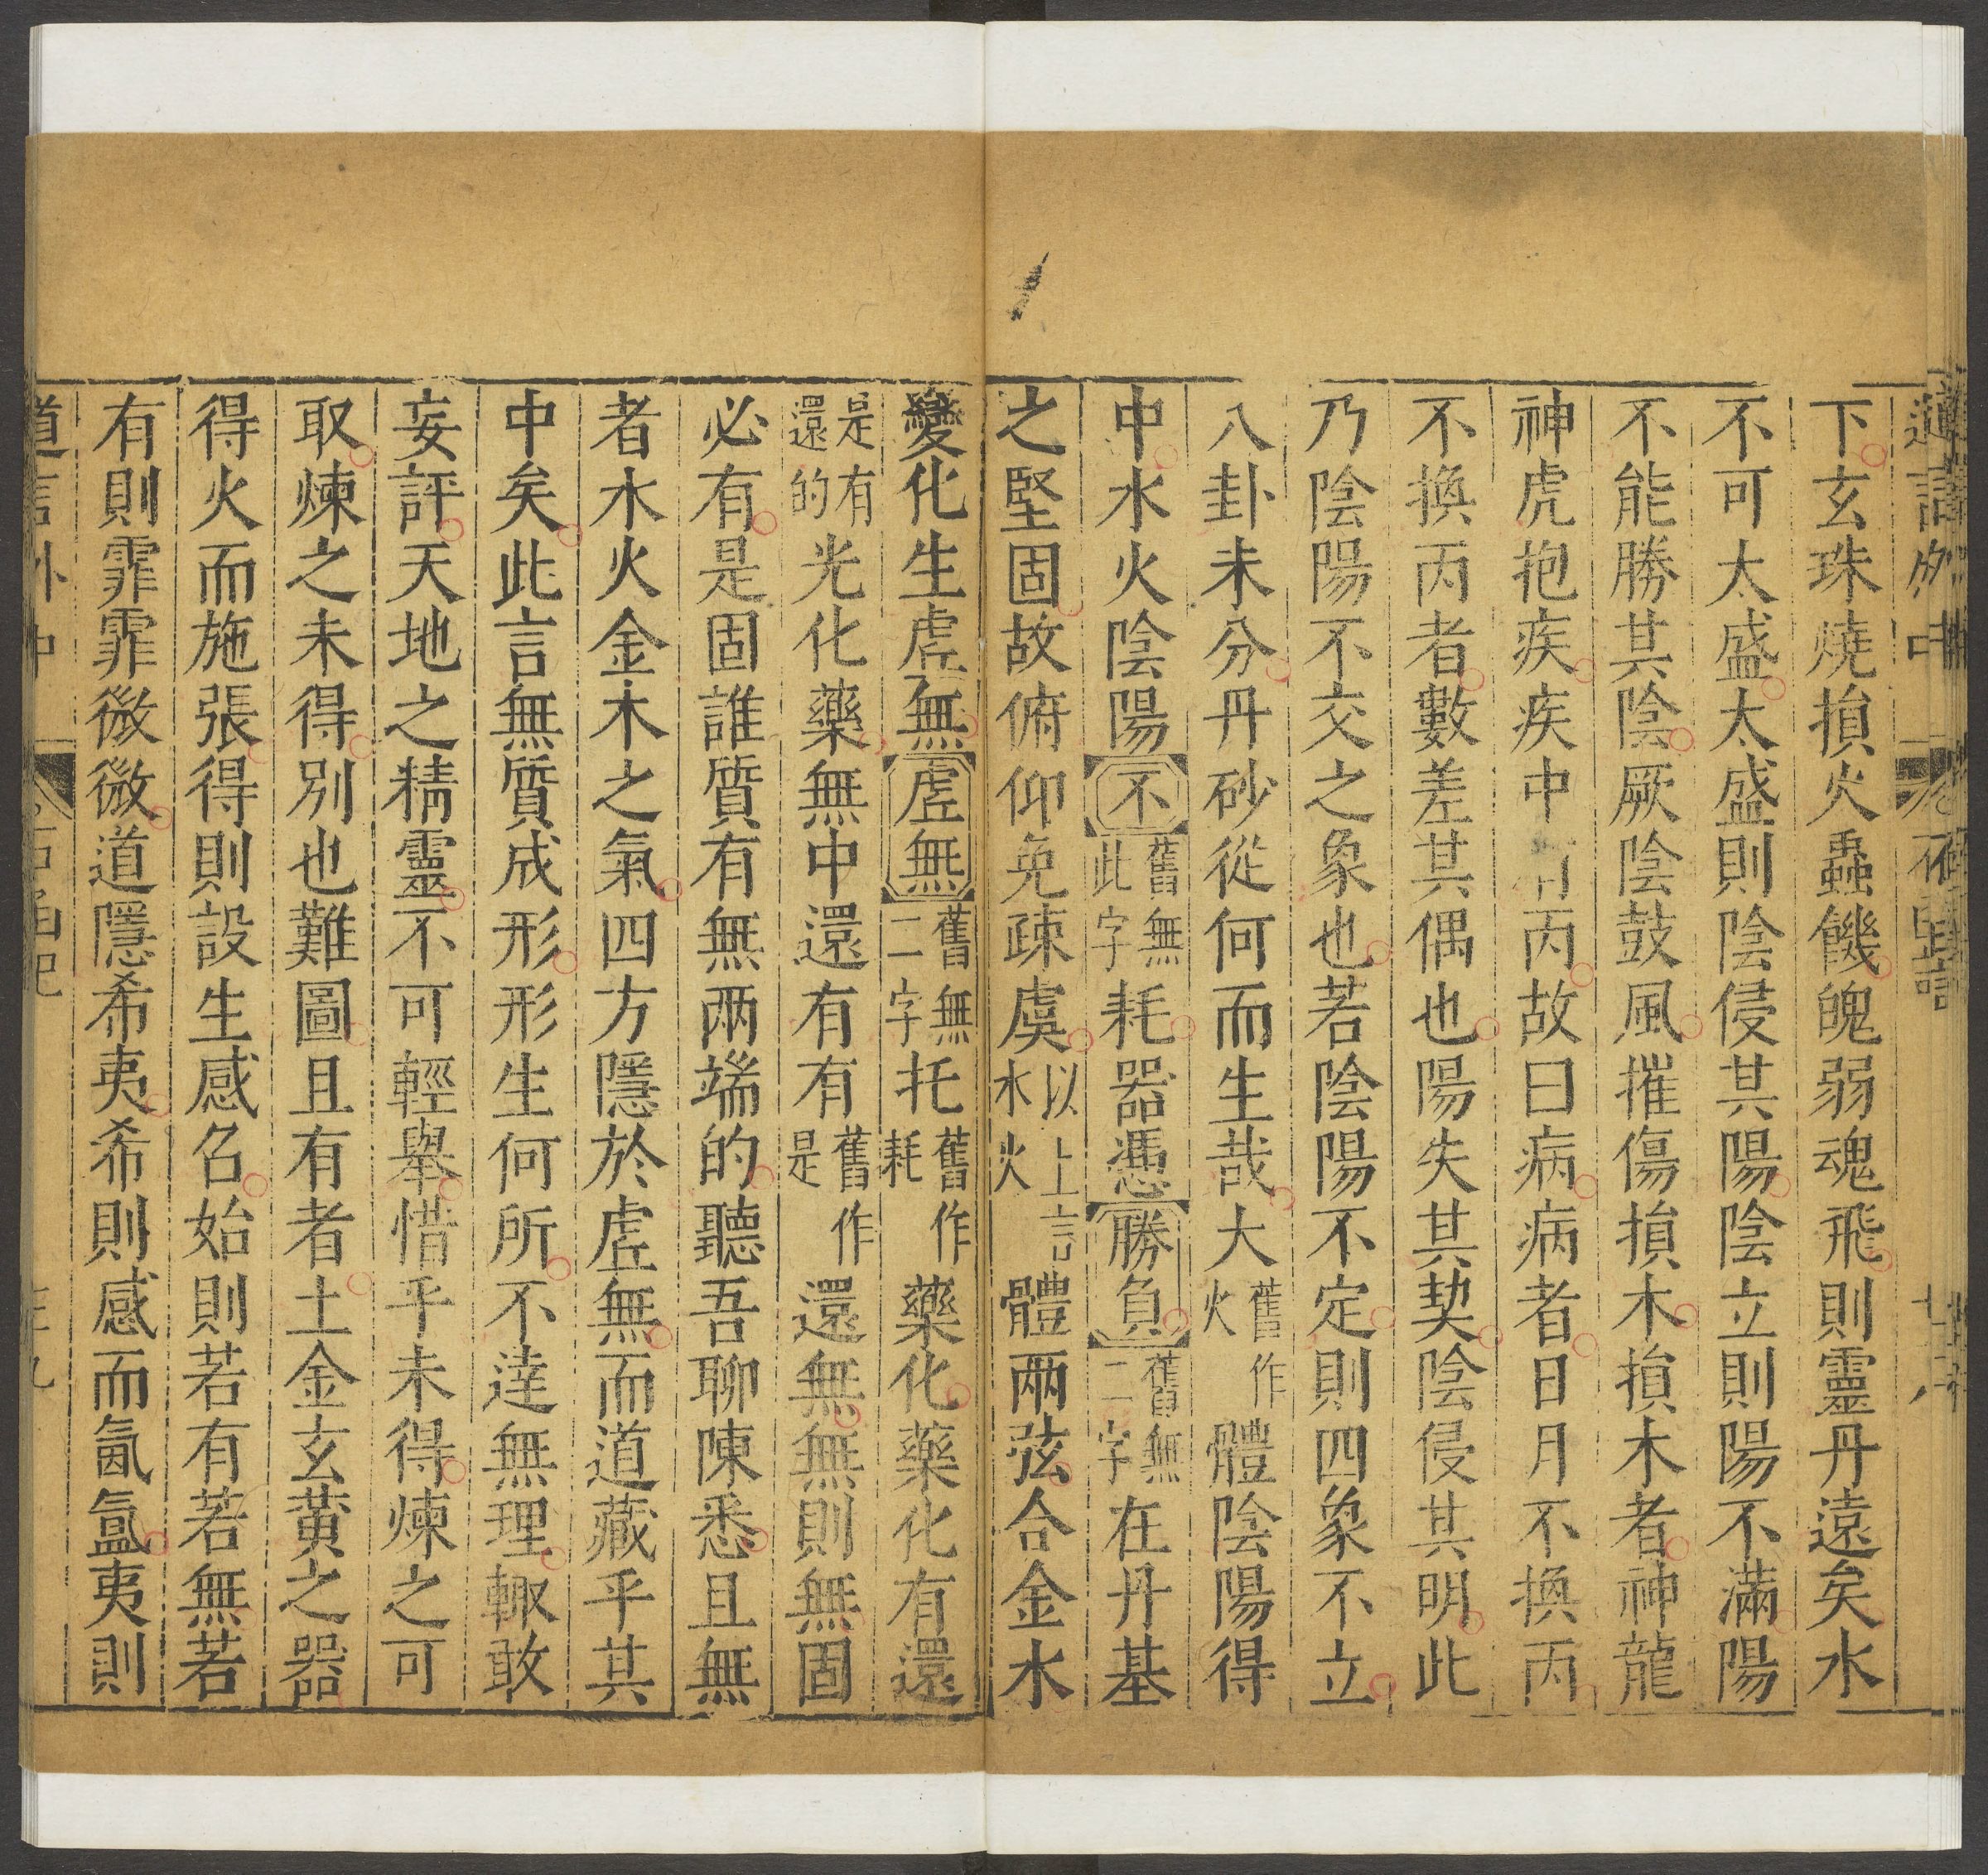 下玄珠燒損火蟲饑魄弱魂飛則靈丹遠矣水
不可太盛太盛則陰侵其陽陰立則陽不滿陽
不能勝其陰厥陰鼓風摧傷損木損木者神龍
神虎抱疾疾中有丙故曰病病者日月不換丙
不換丙者數差其偶也陽失其契陰侵其明此
乃陰陽不交之象也若陰陽不定則四象不立
八卦未分丹砂從何而生哉大舊作火體陰陽得
中水火陰陽不舊無此字耗器憑勝負舊無二字在丹基
之堅固故俯仰免疎虞以上言水火體兩弦合金水
變化生虛無虛無舊無二字托舊作耗藥化藥化有還
是有有還的光化藥無中還有有舊作是還無無則無固
必有是固誰質有無兩端的聽吾聊陳悉且無
者水火金木之氣四方隱於虛無而道藏乎其
中矣此言無質成形形生何所不達無理輙敢
妄評天地之精靈不可輕舉惜乎未得煉之可
取煉之未得別也難圖且有者土金玄黃之器
得火而施張得則設生感名始則若有若無若
有則霏霏微微道隱希夷希則感而氤氳夷則
道言外中